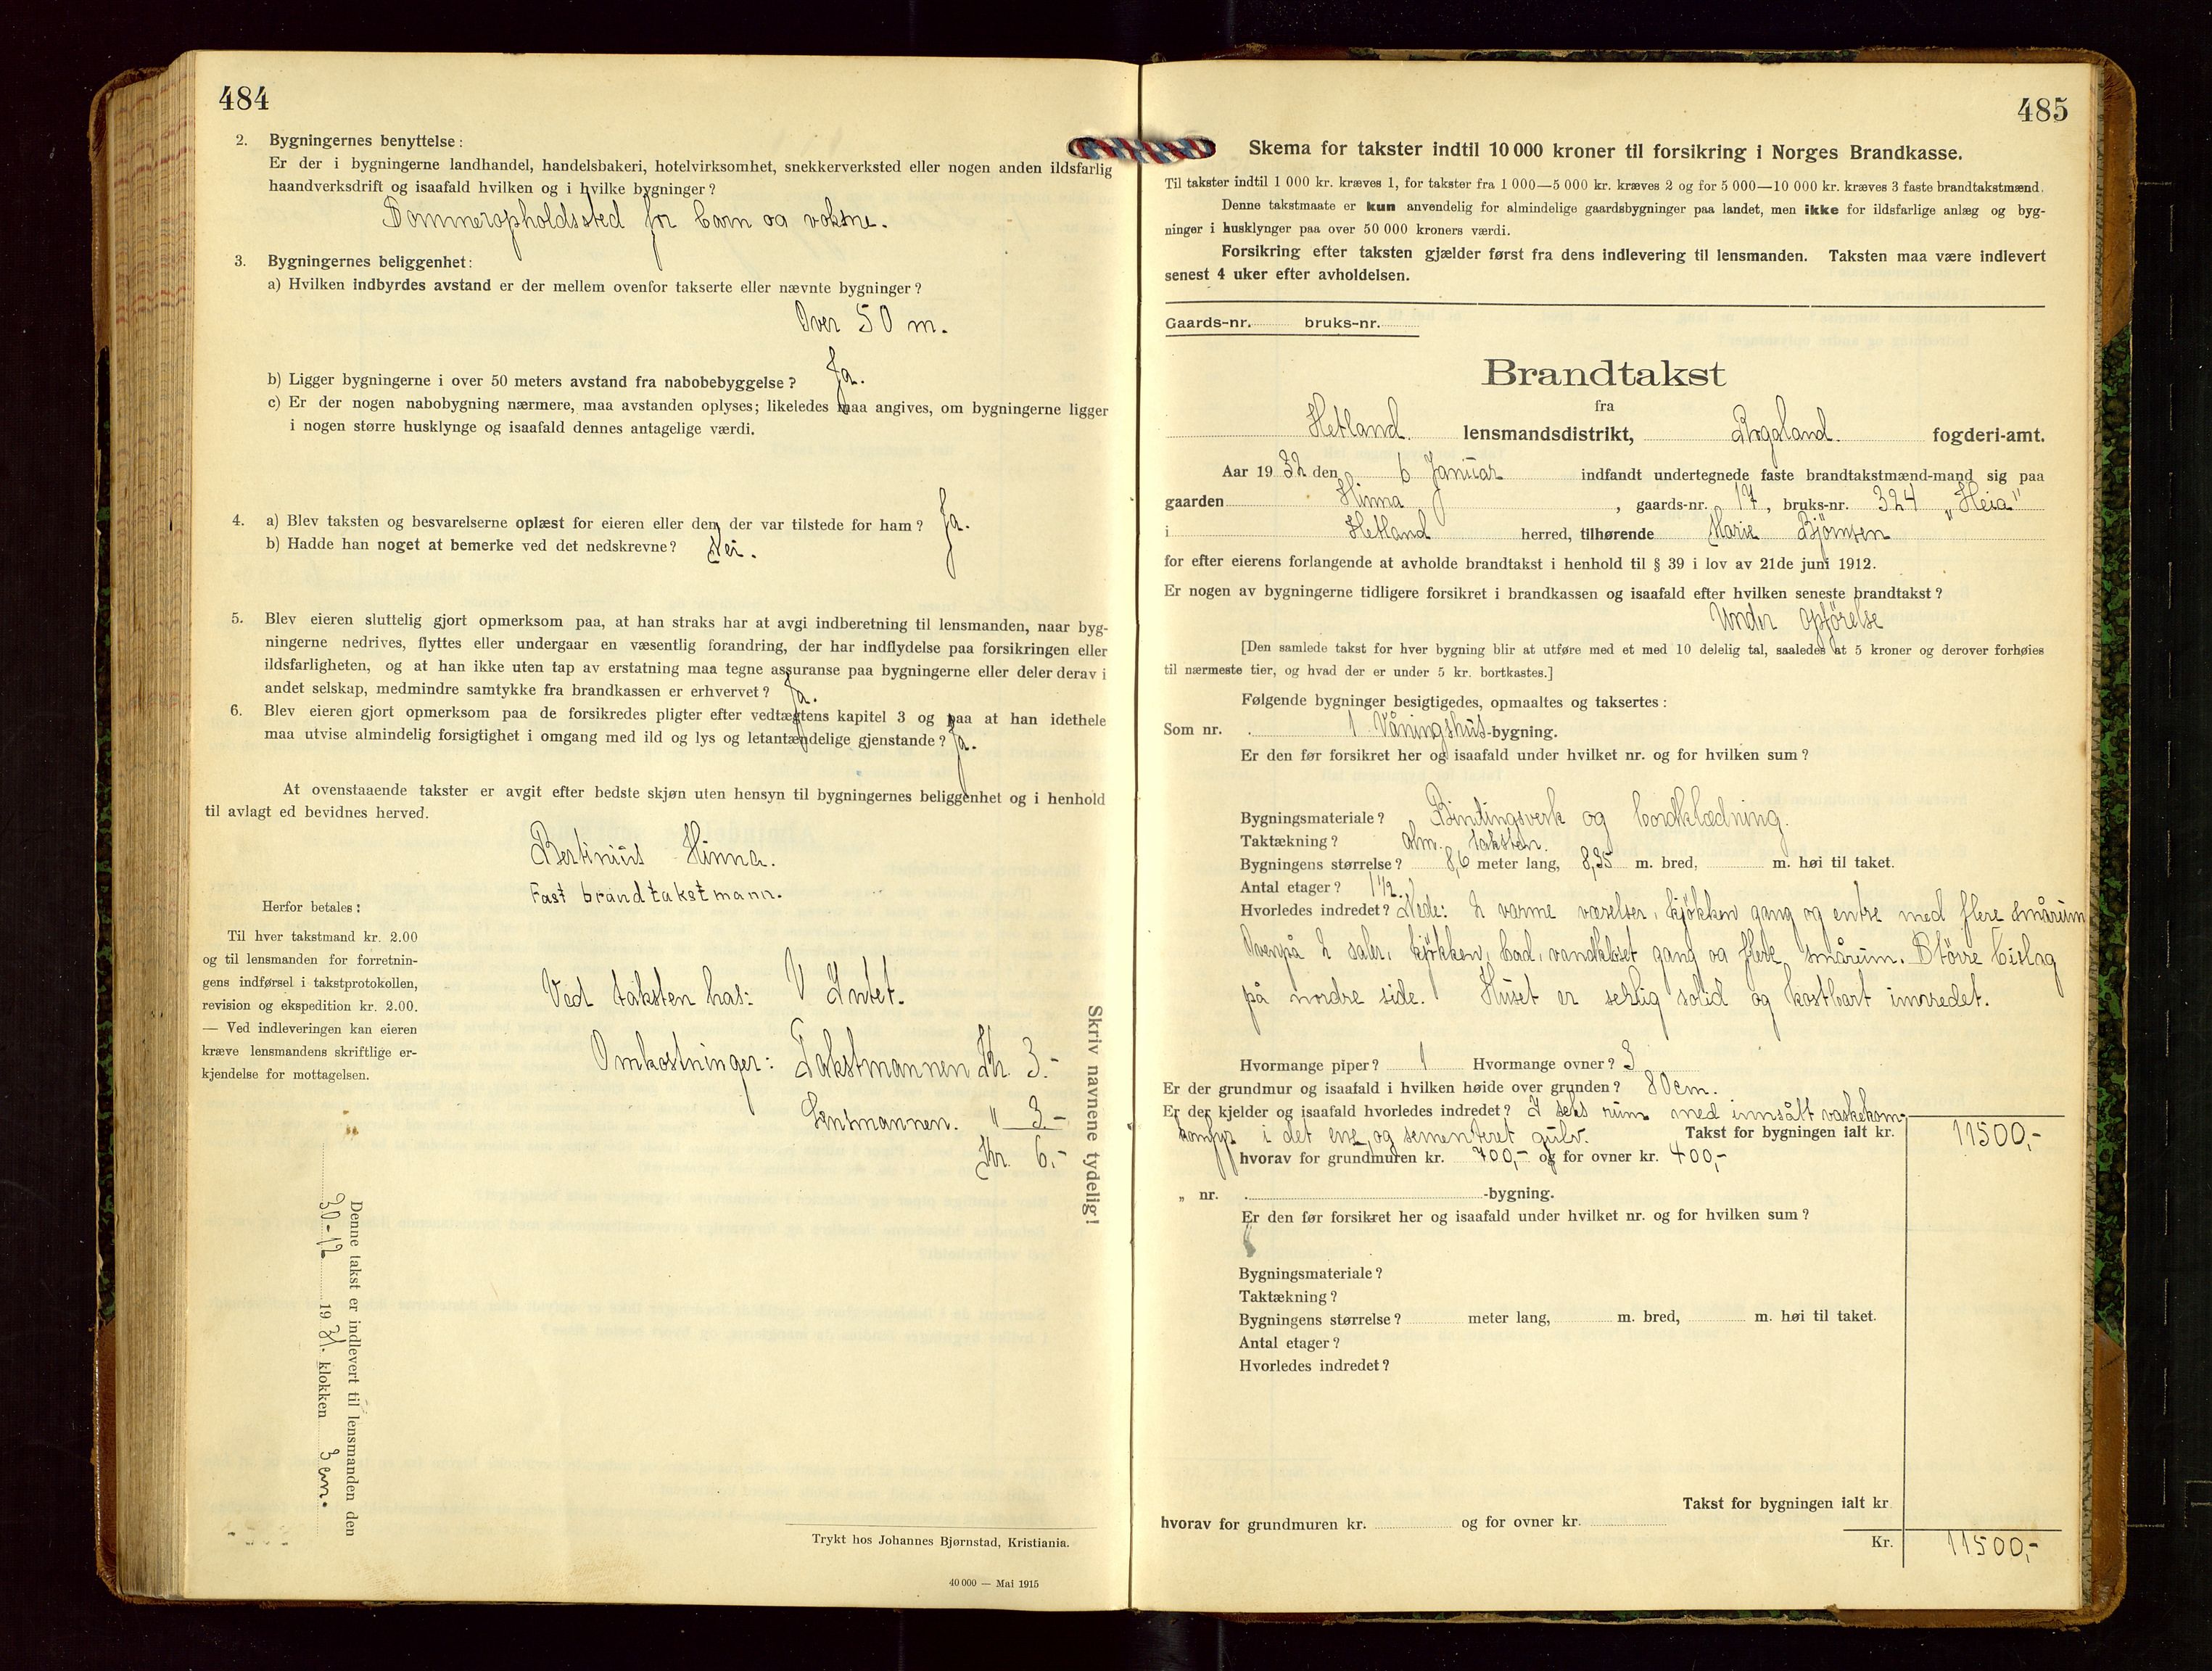 484
2. Bygningernes benyttelse:
Er der i bygningerne landhandel, handelsbakeri, hotelvirksomhet, snekkerverksted eller nogen anden ildsfarlig
haandverksdrift og isaafald hvilken og i hvilke bygninger?
Sommeropholdssted for barn og voksne.
3. Bygningernes beliggenhet:
a) Hvilken indbyrdes avstand er der mellem ovenfor takserte eller nævnte bygninger?
Over 50 m.
b) Ligger bygningerne i over 50 meters avstand fra nabobebyggelse? Ja.
c) Er der nogen nabobygning nærmere, maa avstanden oplyses; likeledes maa angives, om bygningerne ligger
i nogen større husklynge og isaafald dennes antagelige værdi.
4. a) Blev taksten og besvarelserne oplæst for eieren eller den, der var tilstede for ham? Ja.
b) Hadde han noget at bemerke ved det nedskrevne? Nei.
5. Blev eieren sluttelig gjort opmerksom paa, at han straks har at avgi indberetning til lensmanden, naar byg-
ningerne nedrives, flyttes eller undergaar en væsentlig forandring, der har indflydelse paa forsikringen eller
ildsfarligheten, og at han ikke uten tap av erstatning maa tegne assuranse paa bygningerne eller deler derav i
andet selskap, medmindre samtykke fra brandkassen er erhvervet? Ja.
6. Blev eieren gjort opmerksom paa de forsikredes pligter efter vedtægtens kapitel 3 og paa at han idethele
maa utvise almindelig forsigtighet i omgang med ild og lys og letantændelige gjenstande? Ja.
At ovenstaaende takster er avgit efter bedste skjøn uten hensyn til bygningernes beliggenhet og i henhold
til avlagt ed bevidnes herved.
Bertinius Hinna.
Fast brandtakstmann.
Herfor betales:
Til hver takstmand kr. 2.00
og til lensmanden for forretnin-
gens indførsel i takstprotokollen,
revision og ekspedition kr. 2.00.
— Ved indleveringen kan eieren
kræve lensmandens skriftlige er-
kjendelse for mottagelsen.
Ved taksten has: V Intet.
Omkostninger: Takstmannen Kr. 3.-
Lensmannen. " 3.-
Kr. 6.-
Skriv navnene tydelig!
Denne takst er indlevert til lensmanden den
30-12 1931. klokken 3 em.
Trykt hos Johannes Bjørnstad, Kristiania.
40 000 — Mai 1915
485
Skema for takster indtil 10 000 kroner til forsikring i Norges Brandkasse.
Til takster indtil 1 000 kr. kræves 1, for takster fra 1 000—5 000 kr. kræves 2 og for 5 000—10 000 kr. kræves 3 faste brandtakstmænd.
Denne takstmaate er kun anvendelig for almindelige gaardsbygninger paa landet, men ikke for ildsfarlige anlæg og byg-
ninger i husklynger paa over 50 000 kroners værdi.
Forsikring efter taksten gjælder først fra dens indlevering til lensmanden. Taksten maa være indlevert
senest 4 uker efter avholdelsen.
Gaards-nr. bruks-nr.
Brandtakst
fra
Hetland. lensmandsdistrikt, Rogaland. fogderi-amt.
Aar 1932 den 6 Januar indfandt undertegnede faste brandtakstmænd-mand sig paa
gaarden Hinna, gaards-nr. 17, bruks-nr. 324 „Heia"
i Hetland herred, tilhørende Marie Bjørnsen
for efter eierens forlangende at avholde brandtakst i henhold til § 39 i lov av 21de juni 1912.
Er nogen av bygningerne tidligere forsikret i brandkassen og isaafald efter hvilken seneste brandtakst?
Under opførelse
[Den samlede takst for hver bygning blir at utføre med et med 10 delelig tal, saaledes at 5 kroner og derover forhøies
til nærmeste tier, og hvad der er under 5 kr. bortkastes.]
Følgende bygninger besigtigedes, opmaaltes og taksertes:
Som nr. 1 Våningshus-bygning.
Er den før forsikret her og isaafald under hvilket nr. og for hvilken sum?
Bygningsmateriale? Bindingsverk og bordklædning.
Taktækning? alm. taksten.
Bygningens størrelse? 8,6 meter lang, 8,35 m. bred, m. høi til taket.
Antal etager? 1½.
Hvorledes indredet? Nede: 2 varme værelser, kjøkken gang og entre med flere smårum
Ovenpå 2 saler, kjøkken, bad, vandkloset gang og flere smårum. Større bislag
på nordre side. Huset er serlig solid og kostbart innredet.
Hvormange piper? 1 Hvormange ovner? 3
Er der grundmur og isaafald i hvilken høide over grunden? 80cm.
Er der kjelder og isaafald hvorledes indredet? I seks rum med innsått vaskekom-
komfyr i det ene og sementeret gulv. Takst for bygningen ialt kr. 11500,-
hvorav for grundmuren kr. 700,- og for ovner kr. 400,-
„ nr. -bygning.
Er den før forsikret her og isaafald under hvilket nr. og for hvilken sum?
Bygningsmateriale?
Taktækning?
Bygningens størrelse? meter lang, m. bred, m. høi til taket.
Antal etager?
Hvorledes indredet?
Takst for bygningen ialt kr.
hvorav for grundmuren kr. og for ovner kr.
Kr. 11500,-